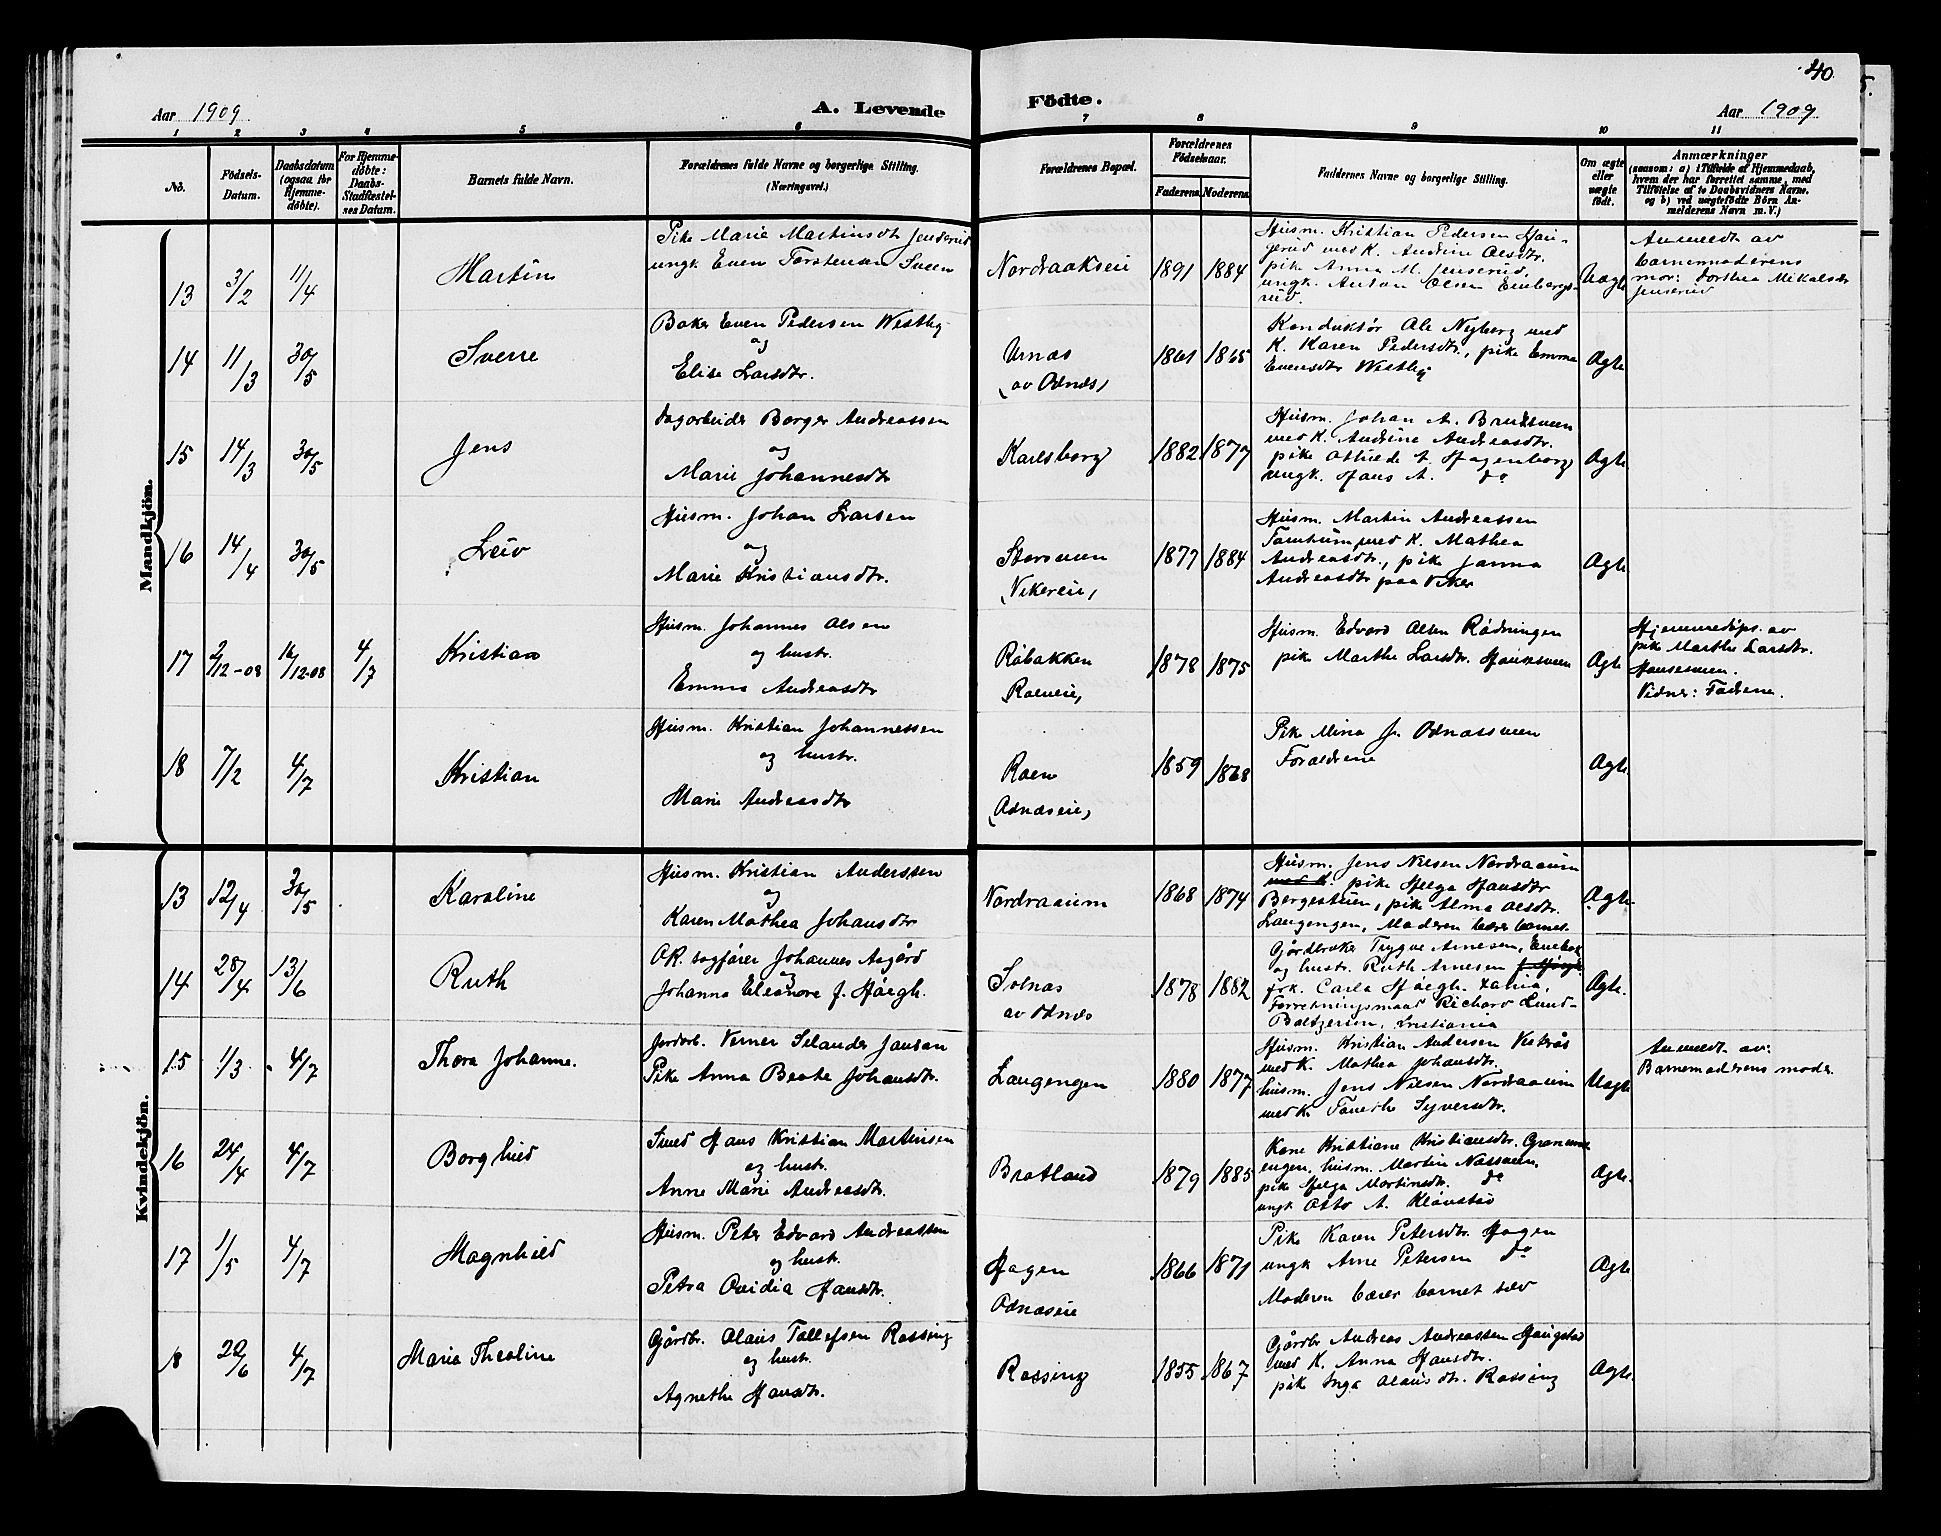 40
Aar 1909
A. Levende Födte.
Aar 1909
1 2 3 4 5 6 7 8 9 10 11
No.
Födsels-Datum.
Daabsdatum (ogsaa for Hjemme-döbte).
For Hjemme-döbte: Daabs-Stadfæstel-ses Datum.
Barnets fulde Navn.
Forældrenes fulde Navne og borgerlige Stilling.
(Næringsvei.)
Forældrenes Bopæl.
Forældrenes Födselsaar.
Faderens Moderens
Faddernes Navne og borgerlige Stilling.
Om ægte eller uægte født.
Anmærkninger
(saasom: a) i Tilfælde af Hjemmedaab,
hvem der har forrettet samme, med
Tilföielse af to Daabsvidners Navne,
og b) ved uægtefödte Börn An-
melderens Navn m. V.)
Mandkjön.
13 3/2 11/4 Martin
Pike Marie Martinsdt Jenserud
ungk Even Torstensen Sveen
Nordraakseie 1891 1884
Husm. Kristian Pedersen Hau-
gerud med K. Andrine Olsdtr.
pike Anna M. Jenserud,
ungk. Anton Olsen Enebergs-
rud.
Uægte
Anmeldt av
barnemoderens
mor: Dorthea Mikalsdtr
Jenserud
14 11/3 30/5 Sverre
Baker Even Pedersen Westby
og
Elise Larsdtr.
Urnæs
(av Odnæs) 1861 1865
Konduktør Ole Nyborg med
K. Karen Pedersdtr., pike Emma
Evensdtr Westby
Ægte
15 14/3 30/5 Jens
Dagarbeider Borger Andreassen
og
Marie Johannesdtr
Karlsborg 1882 1877
Husm. Johan A. Brudesveen
med K. Andrine Andreasdtr.
pike Othilde A. Hagenborg
ungk. Hans A. do
Ægte
16 14/4 30/5 Leiv
Husm. Johan Larsen
og
Marie Kristiansdtr.
Storsveen
(Vikereie) 1877 1884
Husm. Martin Andreassen
Tomtum med K. Mathea
Andreasdtr., pike Janna
Andreasdtr paa Viker
Ægte
17 2/12-08 16/12-08 4/7 Kristian
Husm. Johannes Olsen
og hustr.
Emma Andreasdtr
Røbakken
Roeneie, 1878 1875
Husm. Edvard Olsen Rødningen
pike Marthe Larsdtr. Hansesveen
Ægte
Hjemmedøpt av
pike Marthe Larsdtr.
Hansesveen.
Vidner: Fadrene.
18 7/2 4/7 Kristian
Husm. Kristian Johannessen
og hustr.
Marie Andreasdtr
Roen
(Odnæseie) 1859 1868
Pik Mina J. Odnæssveen
Forældrene
Ægte.
Kvindekjön.
13 12/4 30/5 Karoline
Husm. Kristian Anderssen
og
Karen Mathea Johansdtr
Nordraaum 1868 1874
Husm. Jens Nilsen Nordraaum
med K. pike Helga Hansdtr
Bergestuen, pik Alma Olsdtr.
Laugengen, Moderen bærer barnet.
Ægte
14 28/4 13/6 Ruth
OR. sagfører Johannes Asgård
og
Johanna Eleonore f. Høegh.
Solnæs
av Odnæs 1878 1882
Gårdbruker Trygve Arnesen, Enebak
og hustr. Ruth Arnesen f. Høegh.
frk. Carla Høegh.
Forretningsmand Richard Lund-
Baltzersen, Kristiania
Ægte.
15 1/3 4/7 Thora Johanne.
Jordarb. Verner Selander Jansan
Pike Anna Beate Johansdtr.
Laugengen 1880 1877
Husm. Kristian Andersen
med K. Mathea Johansdtr.
husm. Jens Nilsen Nordraaum
med K. Taneth Syversdtr.
Uægte
Anmeldt av:
Barnemoderens moder.
16 24/4 4/7 Borghild
Smed Hans Kristian Martinsen
og hustr.
Anne Marie Andreasdtr.
Bratland 1879 1885
Kone Kristiane Kristiansdtr. Granum-
engen, husm. Martin Næssveen,
pike Helga Martinsdtr. do
ungk Otto A. Kløvstad
Ægte.
17 1/5 4/7 Magnhild
Husm. Peter Edvard Andreassen
og hustr.
Petra Ovidia Hansdtr.
Hagen
Odnæseie 1866 1871
Pike Karen Petersdtr. Hagen
ungk Arne Petersen do
Moderen bærer barnet selv
Ægte
18 20/6 4/7 Maria Thealine
Gårdbr. Olaus Tollefsen Røssing
og hustr.
Agnethe Hansdtr.
Røssing 1855 1867
Gårdbr Andreas Andreassen Haugstad
med K. Anna Hansdtr.
pik Inga Olausdtr. Røssing
Ægte.